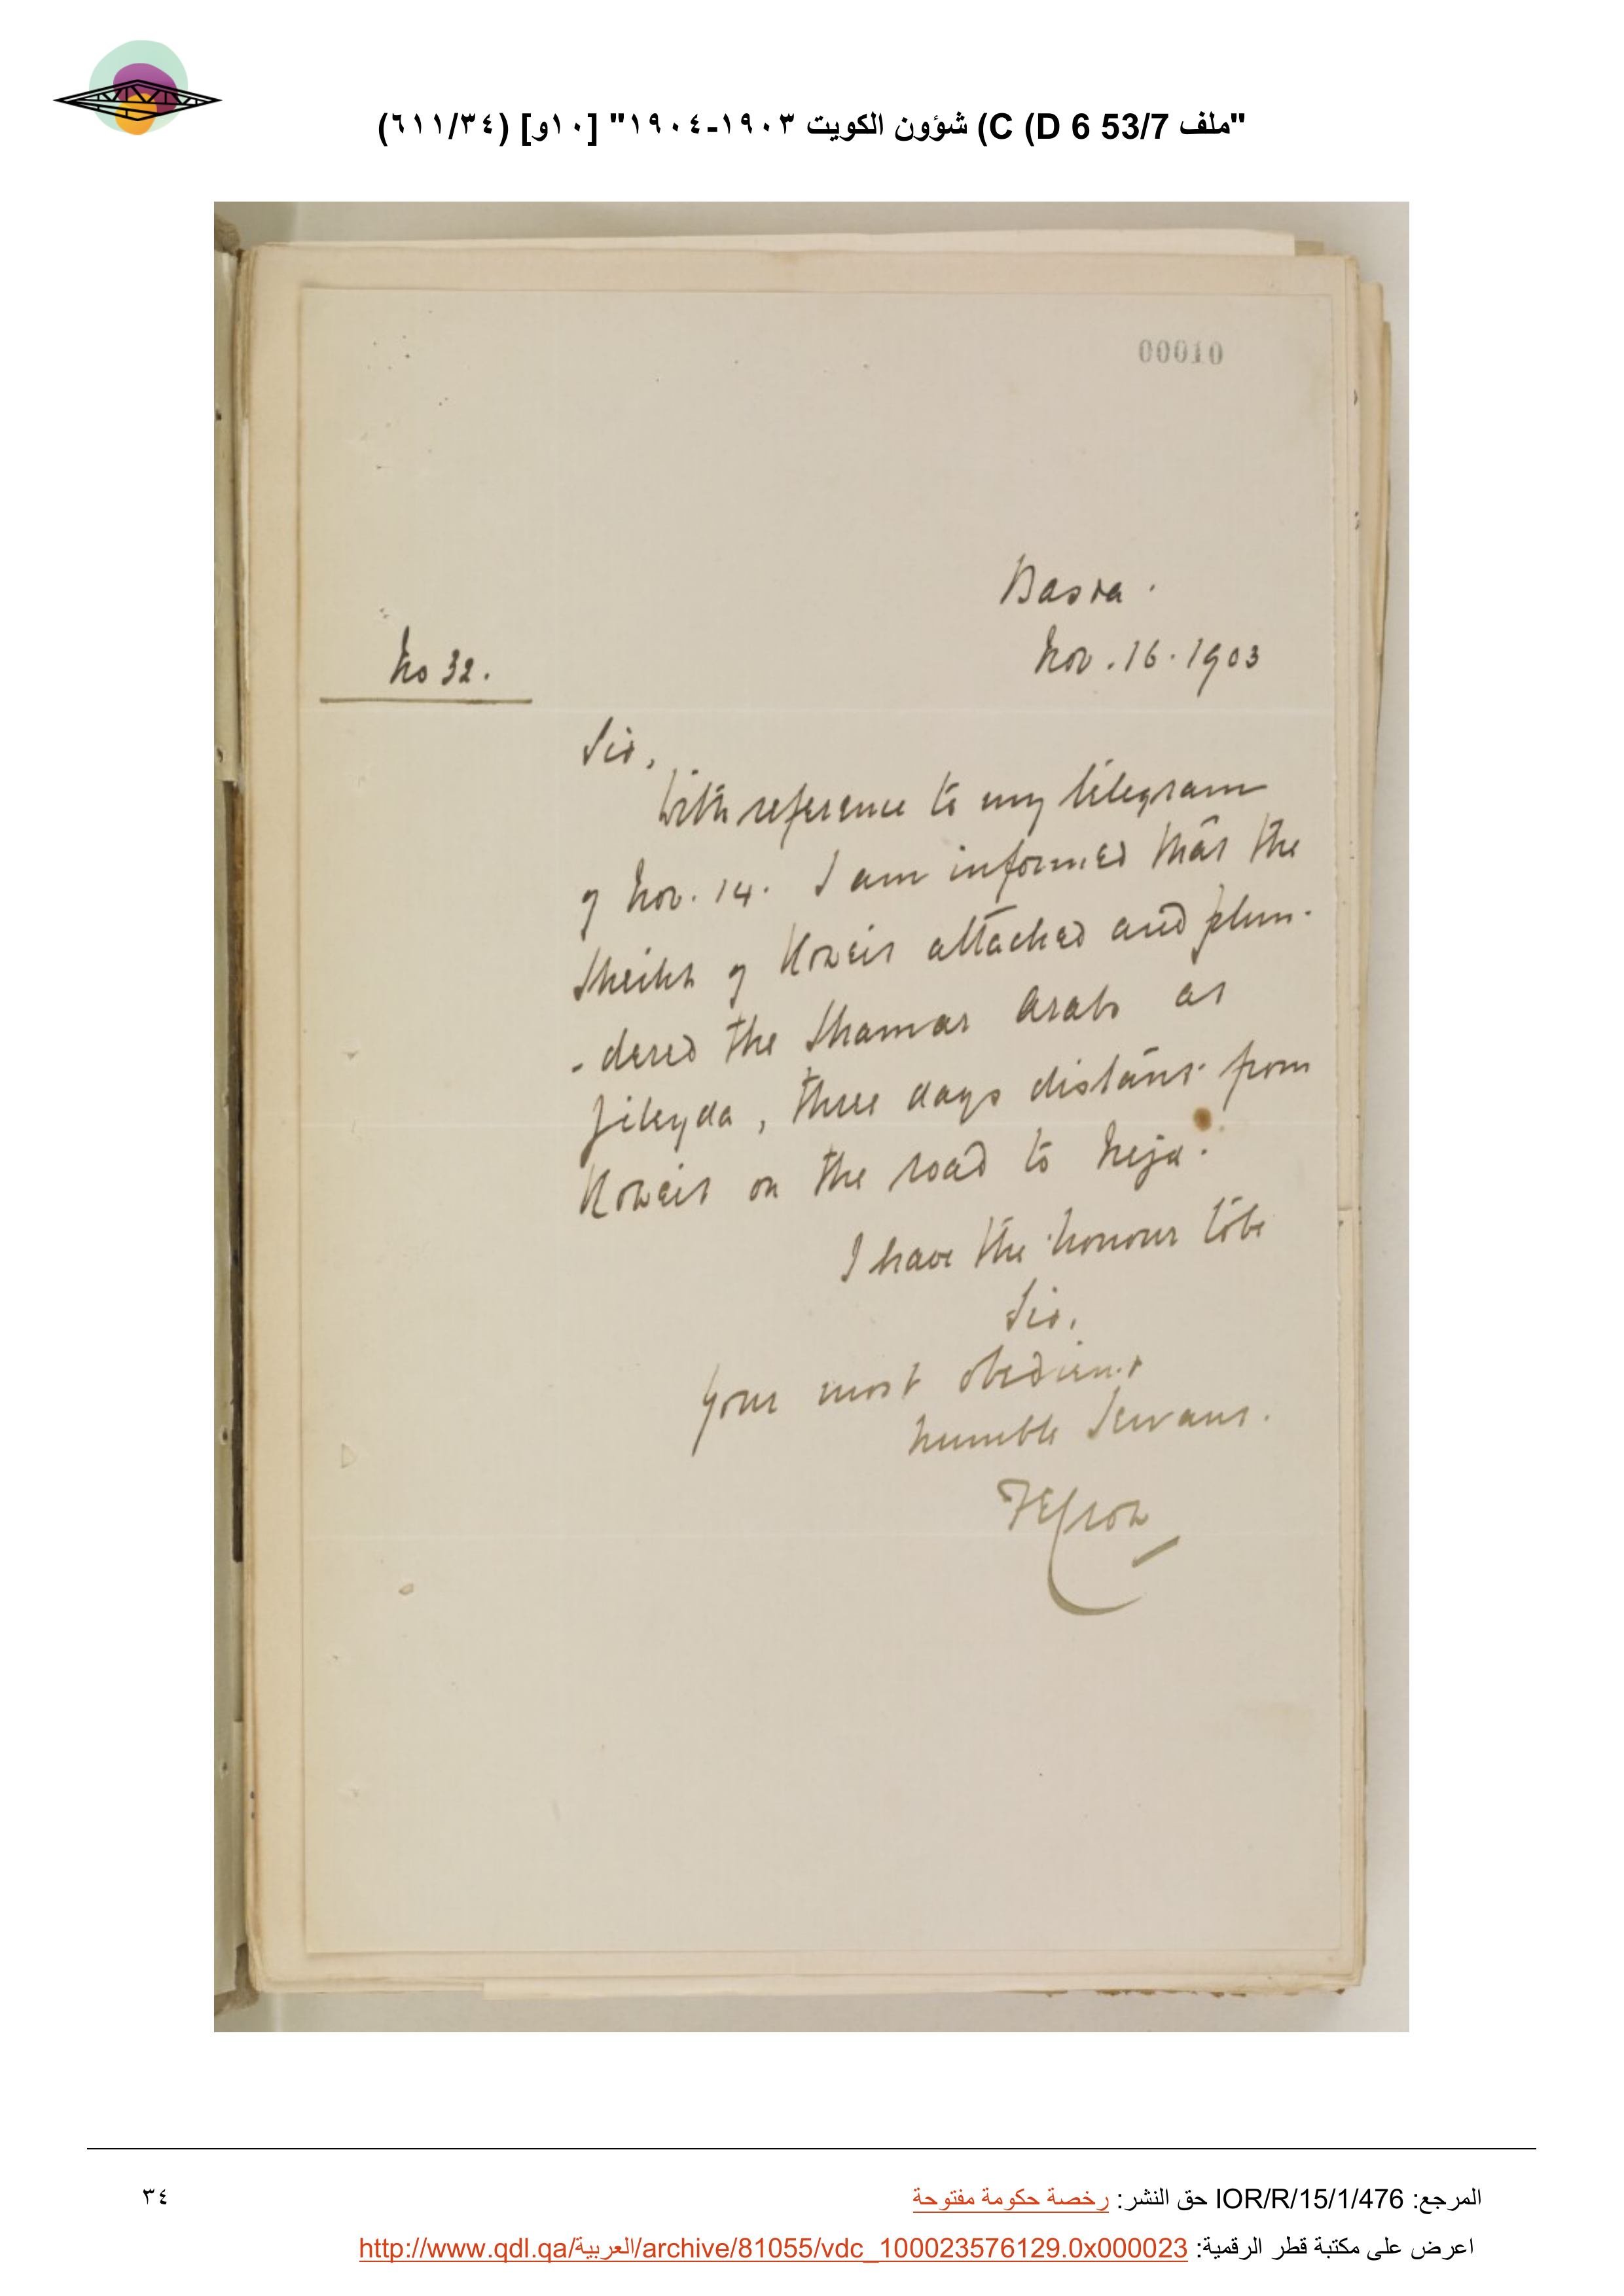 "ملف 53/7 C (D 6) شؤون الكويت ١٩٠٣-١٩٠٤" [١٠و] (٦١١/٣٤)
00010
Basra.
No 32.
Nov. 16. 1903
Sir,
With reference to my telegram
of Nov. 14. I am informed that the
Sheikh of Koweit attacked and plun-
-dered the Shamar Arabs at
Jileyda, three days distant from
Koweit on the road to Nejd.
I have the honour to be
Sir,
Your most obedient
humble Servant.
FECrow
المرجع: IOR/R/15/1/476 حق النشر: رخصة حكومة مفتوحة
٣٤
اعرض على مكتبة قطر الرقمية: http://www.qdl.qa/العربية/archive/81055/vdc_100023576129.0x000023